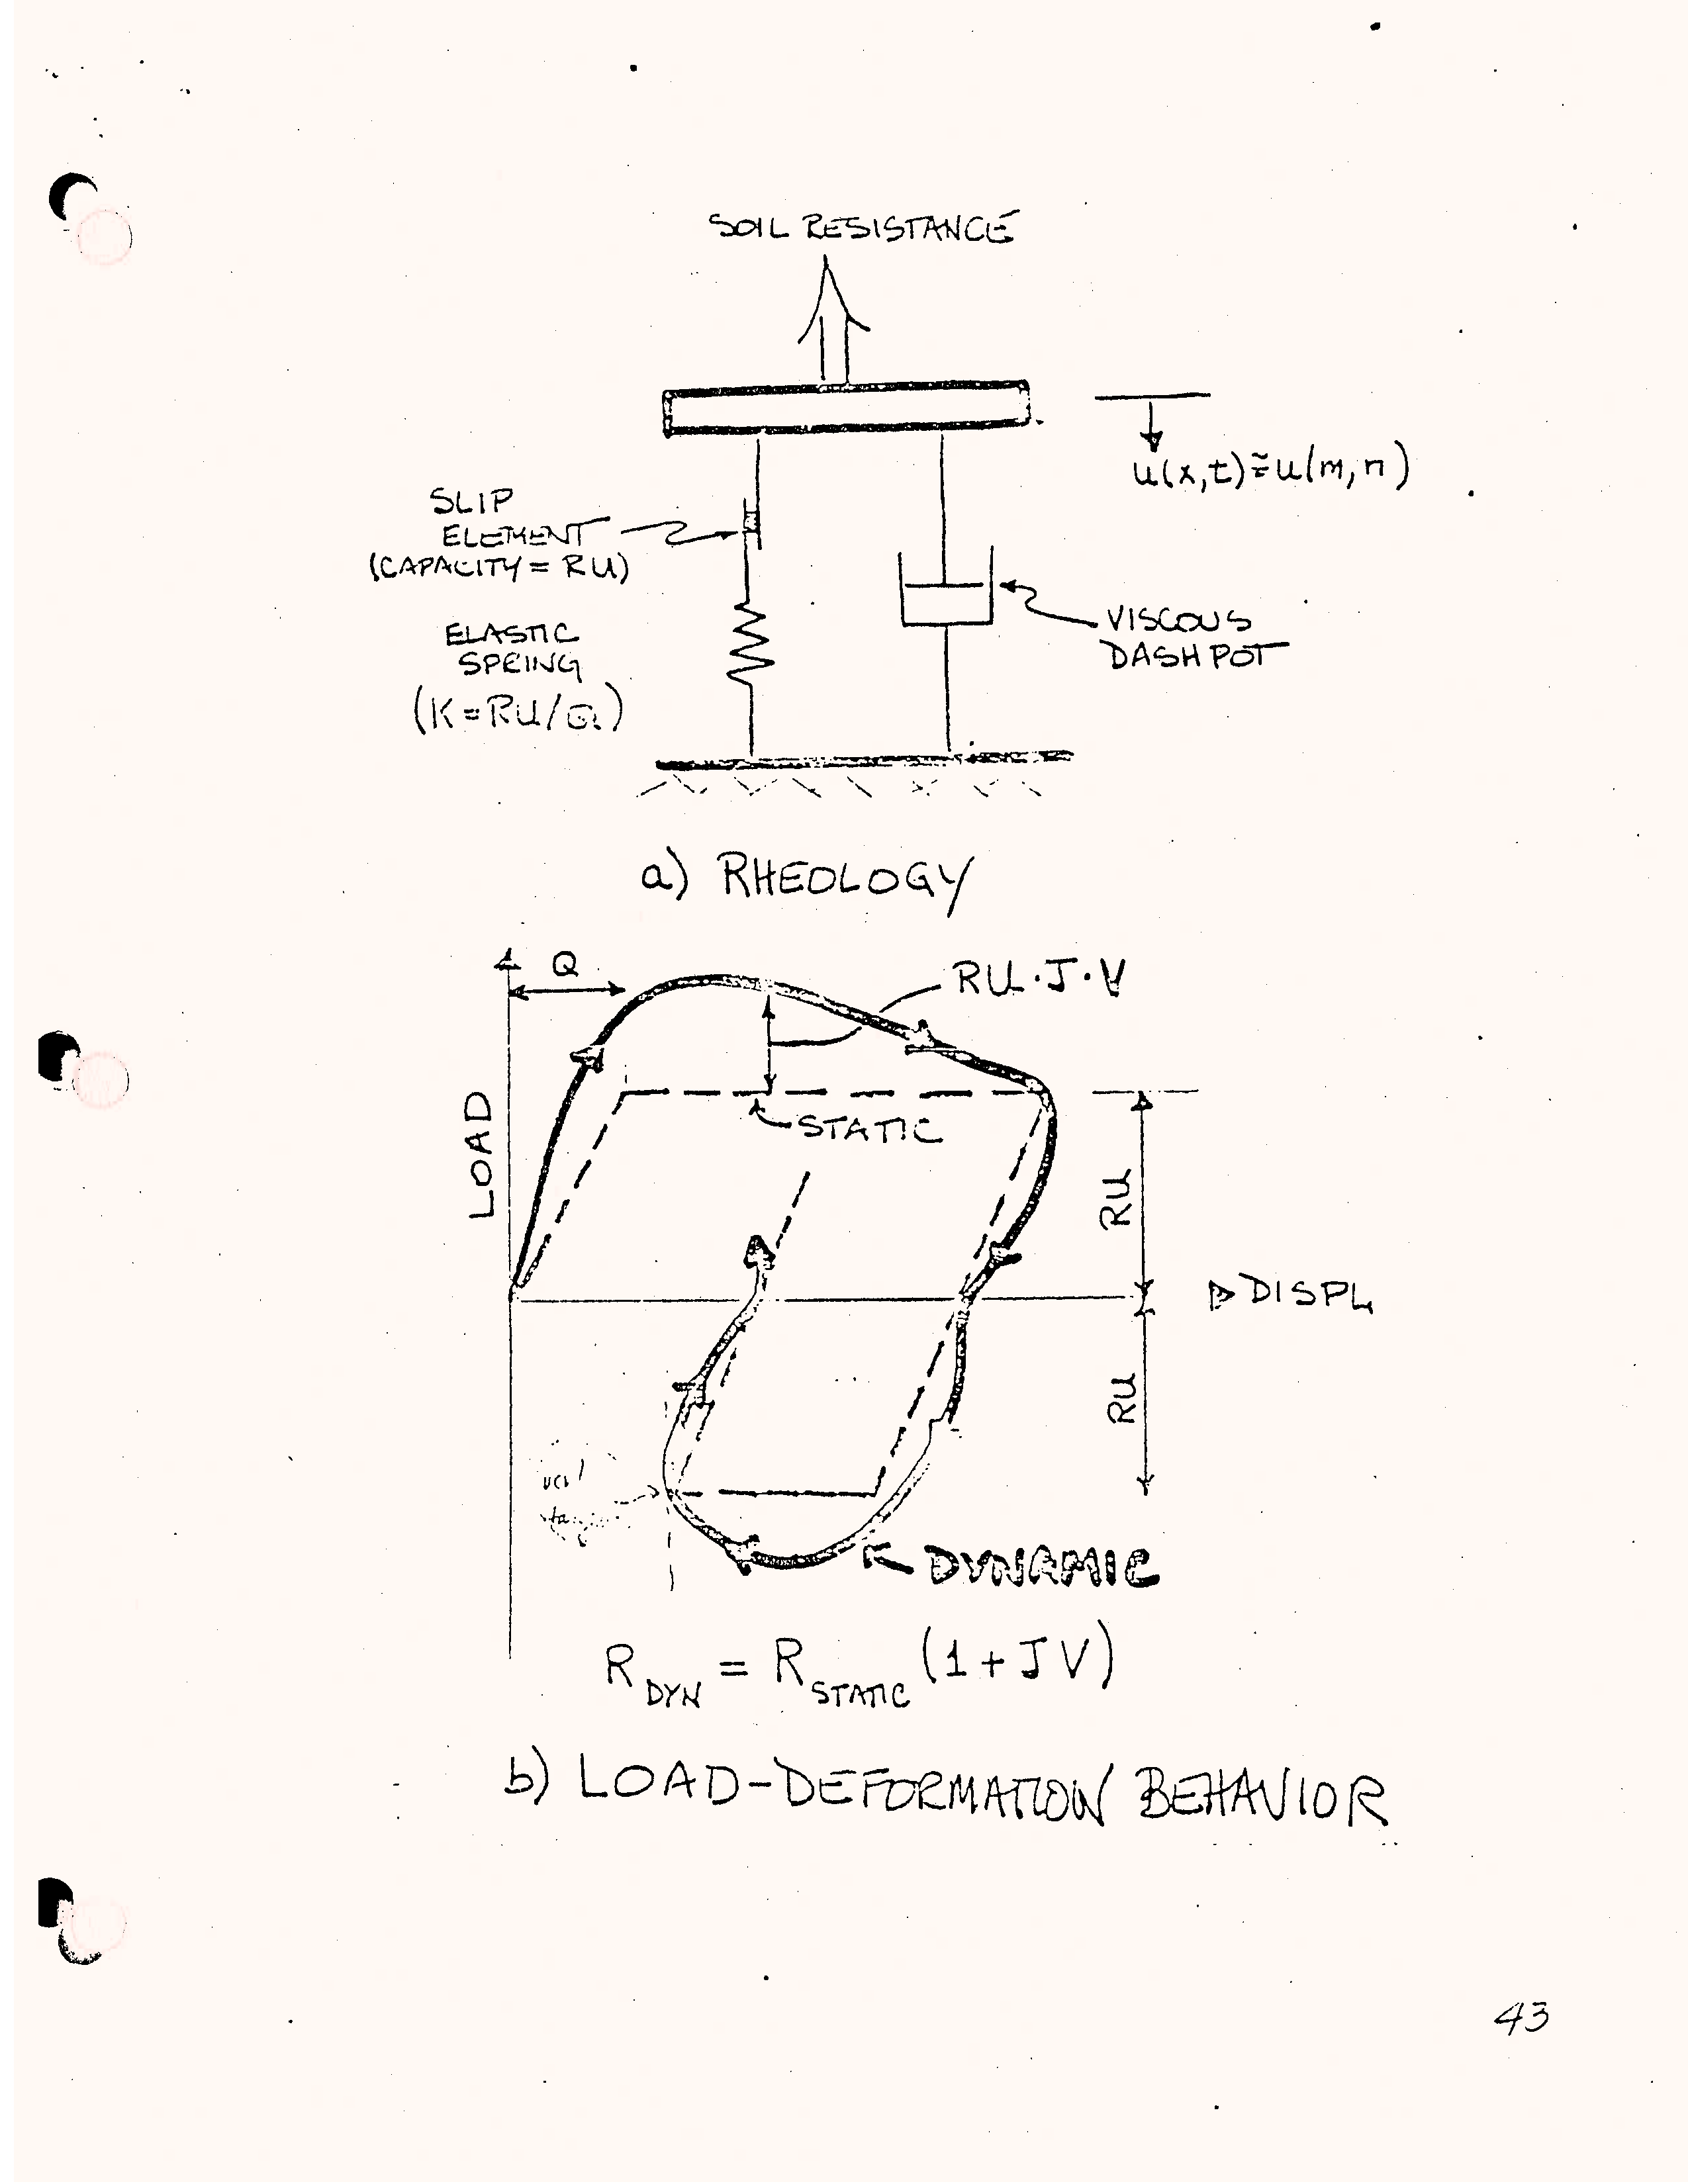 SOIL RESISTANCE
u(x,t)≅u(m,n)
SLIP
ELEMENT
(CAPACITY = RU)
ELASTIC
SPRING
(K=RU/Q)
VISCOUS
DASHPOT
a) RHEOLOGY
Q
RU·J·V
LOAD
STATIC
RU
DISPL
RU
DYNAMIC
R DYN = R STATIC (1+JV)
b) LOAD-DEFORMATION BEHAVIOR
43